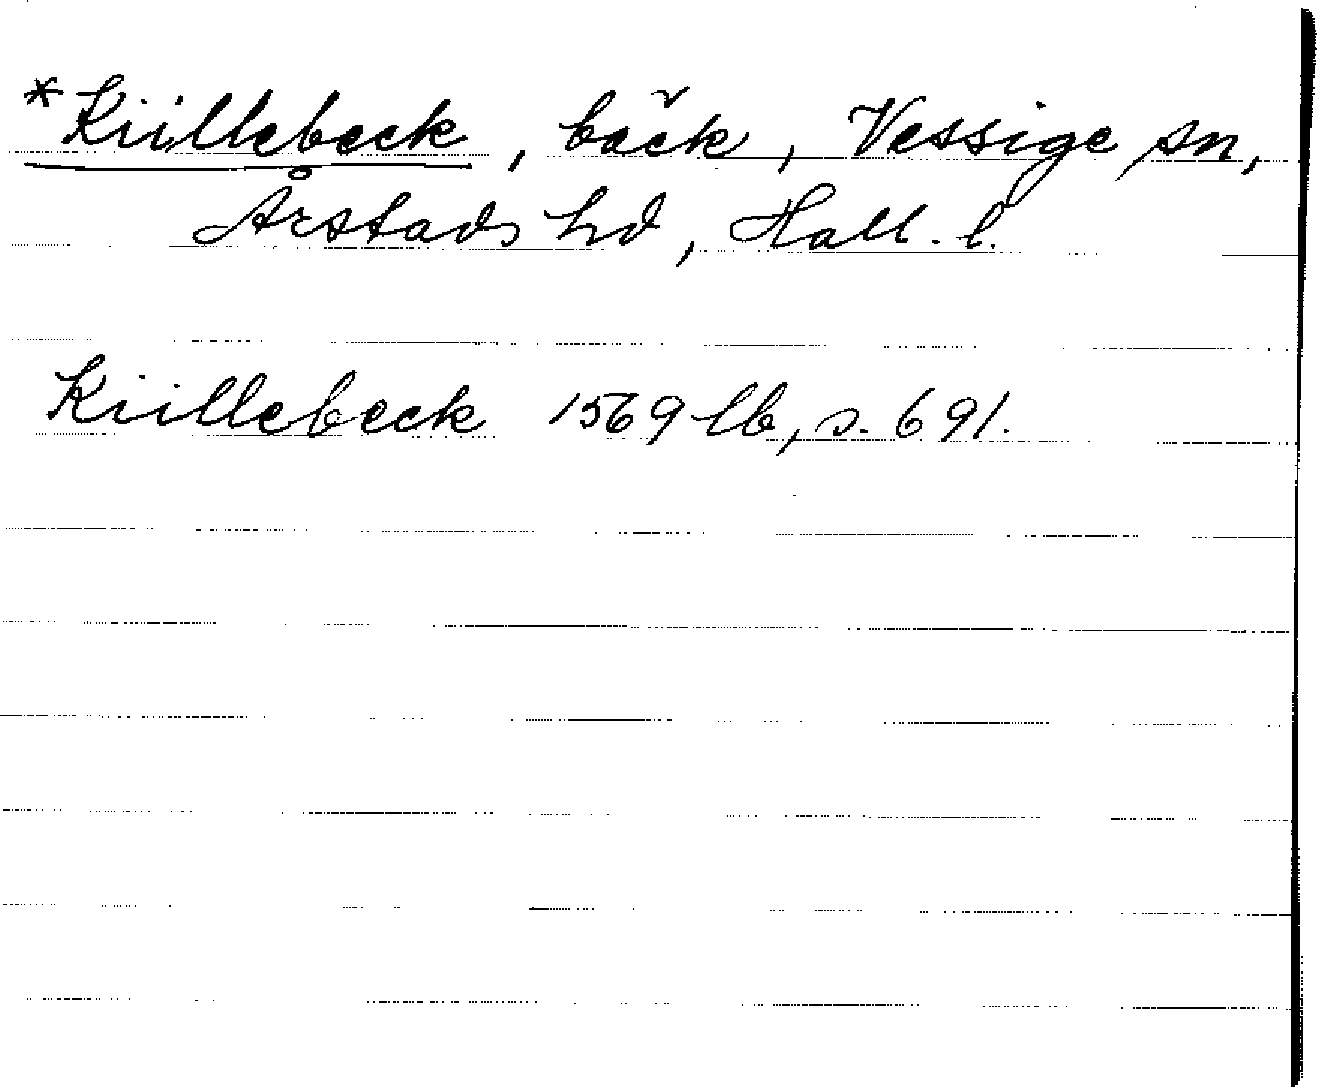 *Küllebeck, bäck, Vessige sn,
Årstads hd, Hall. l.
Küllebeck 1569 lb, s. 691.